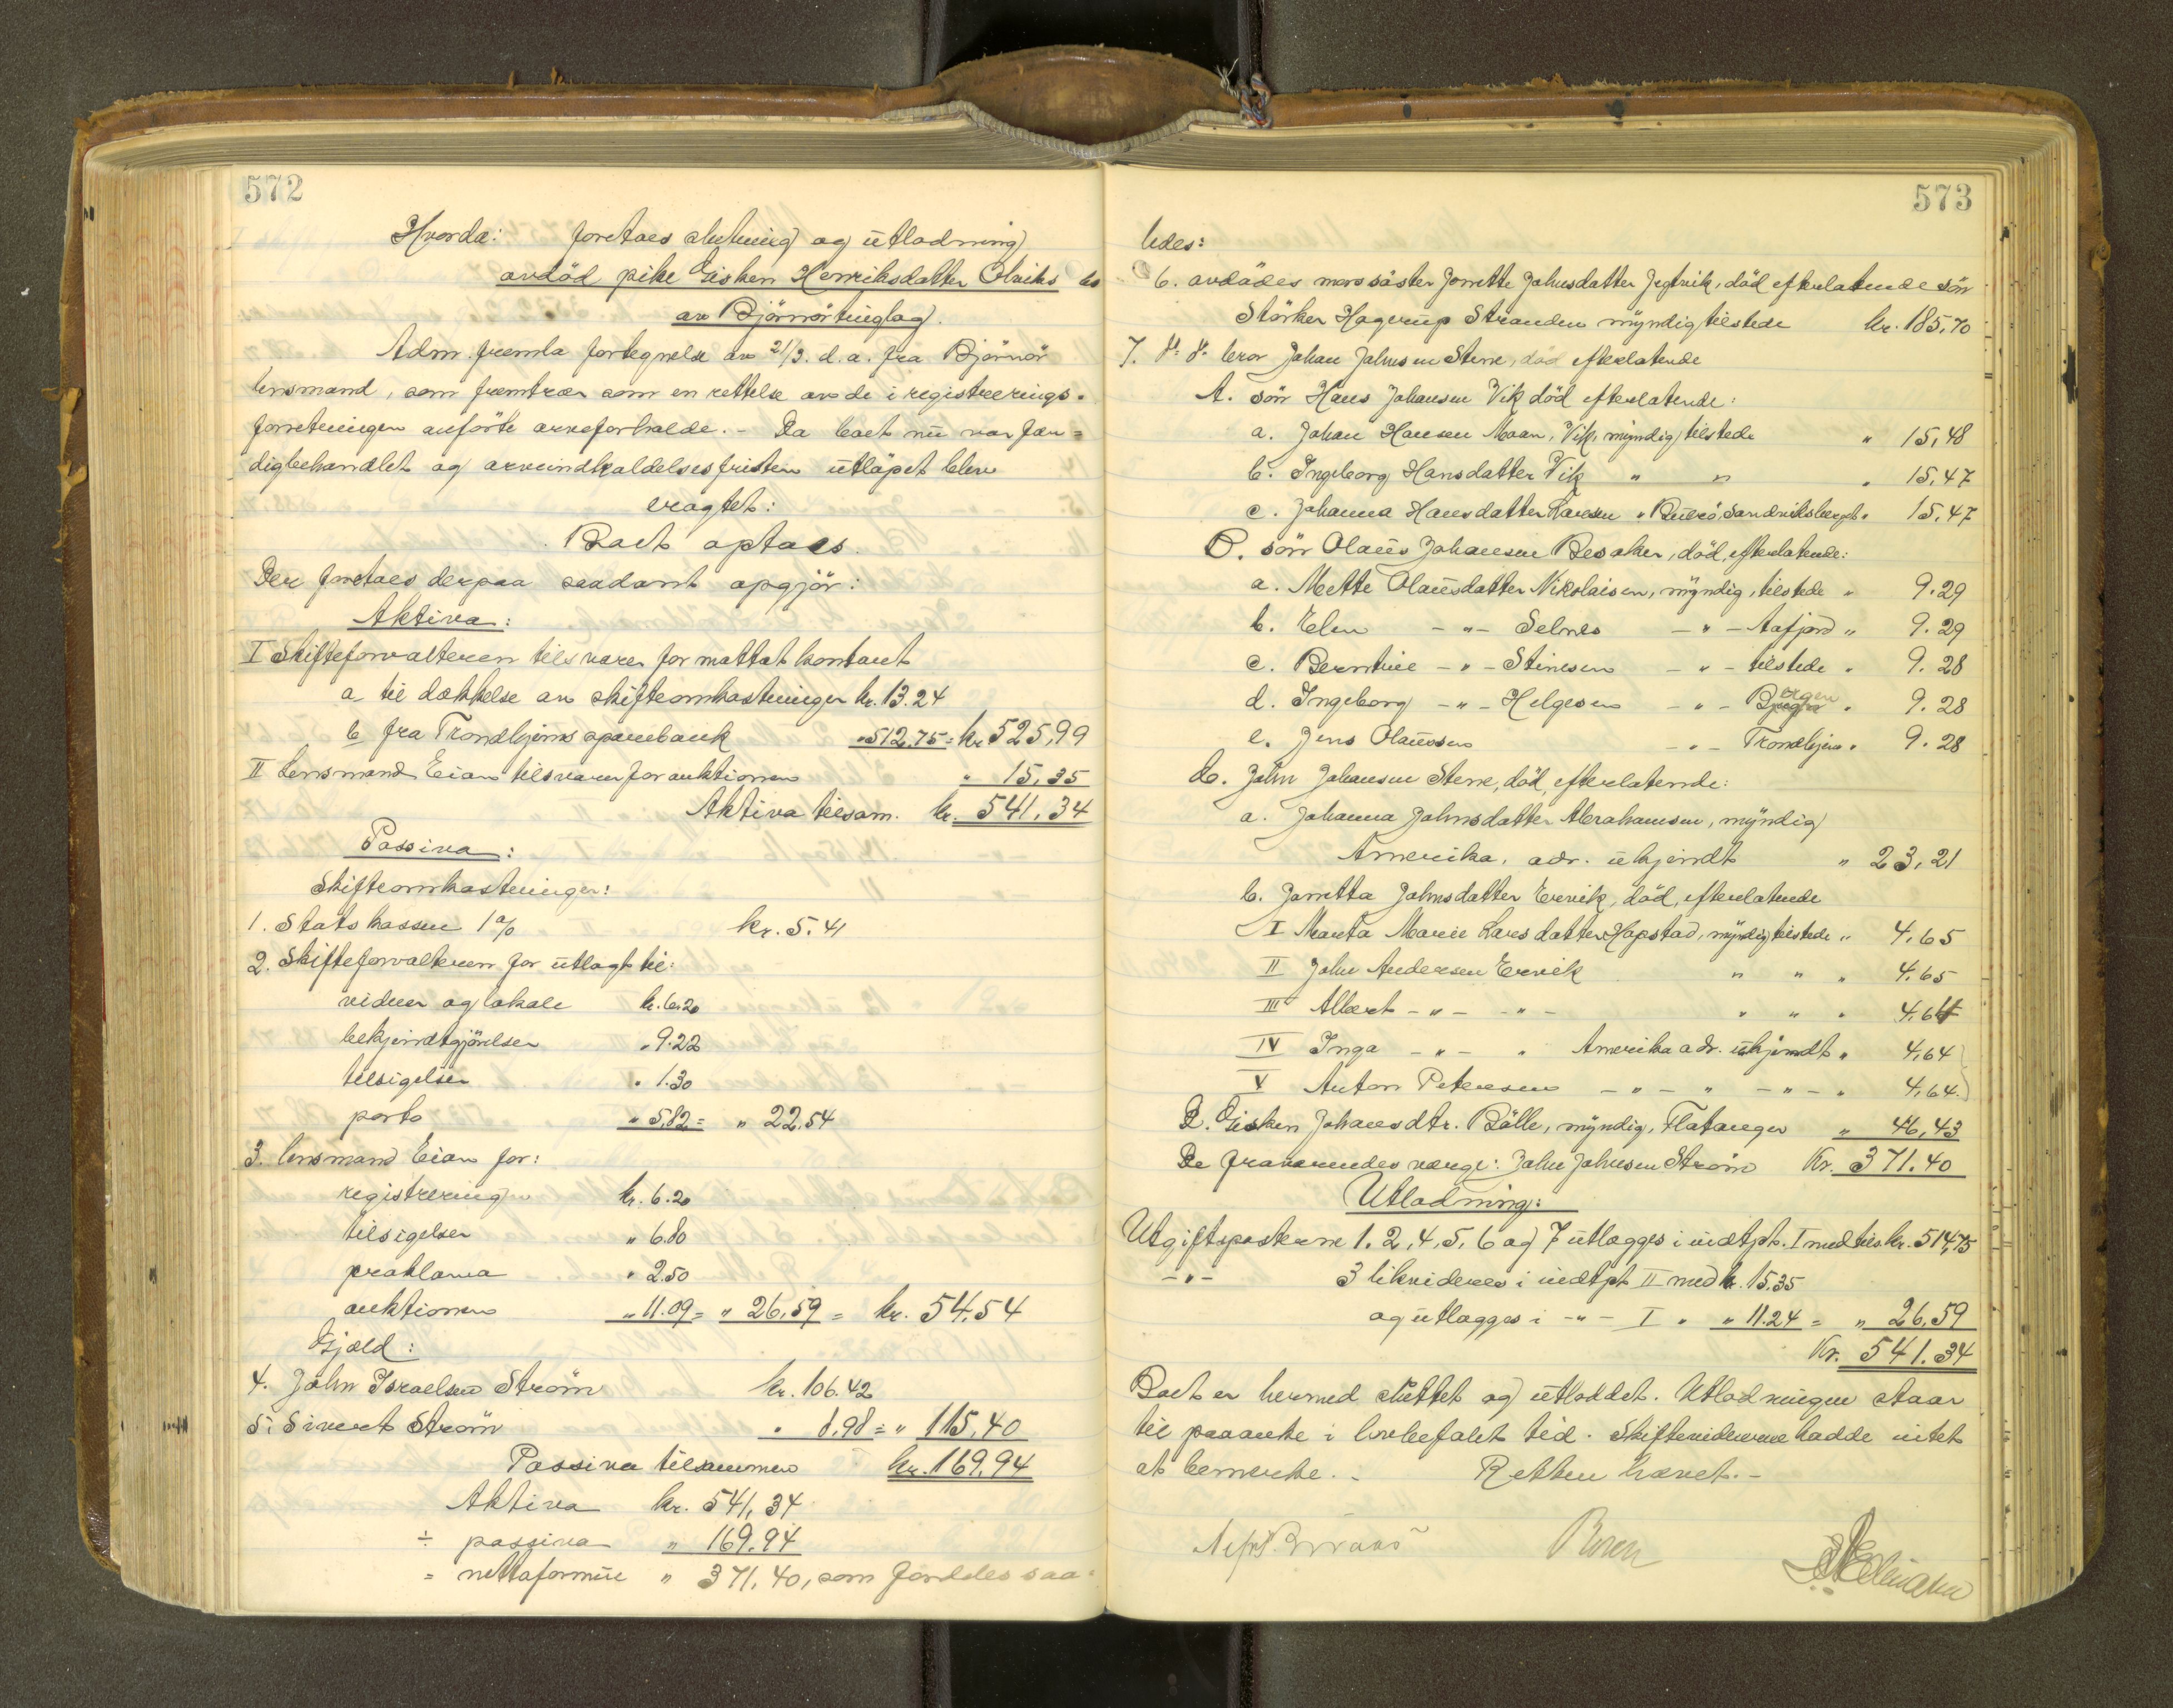 572
Hvorda: foretaes slutning og utlodning
avdöd pike Gisken Henriksdatter Olviks bo
av Björnör tinglag.
Adm. fremla fortegnelse av 21/3. d.a. fra Björnör
lensmand, som fremtrær som en rettelse av de i registrerings-
forretningen anförte arveforholde. - Da boet nu var fær=
digbehandlet og arveindkaldelsesfristen utlöpet blev
eragtet:
Boet optaes.
Der foretaes derpaa saadant opgjör:
Aktiva:
I Skifteforvalteren tilsvarer for mottat kontant
a til dækkelse av skifteomkostninger kr. 13.24
b fra Trondhjems sparebank " 512.75 = kr 525,99
II Lensmand Eian tilsvarer for auktionen " 15,35
Aktiva tilsam. kr. 541,34
Passiva:
Skifteomkostninger:
1. Statskassen 1% kr. 5.41
2. Skifteforvalteren for utlagt til:
vidner og lokale kr. 6.20
bekjendtgjörelser " 9.22
tilsigelser " 1.30
porto " 5,82 = " 22.54
3. lensmand Eian for:
registrering kr. 6.20
tilsigelser " 6.80
proklama " 2.50
auktionen " 11.09 = " 26,59 = kr. 54,54
Gjæld:
4. John Israelsen Ström kr. 106.42
5. Sivert Ström " 8.98 = " 115,40
Passiva tilsammen kr. 169,94
Aktiva kr. 541,34
÷ passiva " 169.94
= nettoformue " 371,40, som fordeles saa=
573
ledes:
6. avdödes morssöster Jonette Johnsdatter, död efterlatende sön
Störker Hagerup Stranden myndig tilstede kr. 185,70
7. d⁰ d⁰ bror Johan Johnsen Stene, död efterlatende
A. sön Hans Johansen Vik död efterlatende:
a. Johan Hansen Moan, Vik, myndig, tilstede " 15,48
b. Ingeborg Hansdatter Vik " " " 15,47
c. Johanna Hansdatter Larsen " Buerö, Sandviksberget " 15,47
B. sön Olaus Johansen Besaker, död, efterlatende:
a. Mette Olausdatter Nikolaisen, myndig, tilstede " 9.29
b. Elen -"- Selnes -"- Aafjord " 9.29
c. Berntine -"- Stinesen -"- tilstede " 9.28
d. Ingeborg -"- Helgesen -"- Bergen " 9.28
e. Jens Olaussen -"- Trondhjem " 9.28
C. John Johansen Stene, död, efterlatende:
a. Johanna Johnsdatter Abrahamsen, myndig
Amerika, adr. ukjendt " 23,21
b. Jonetta Johnsdatter Ervik, död, efterlatende
I Marta Marie Larsdatter Hopstad, myndig tilstede " 4,65
II John Andersen Ervik " " " 4.65
III Albert -"- -"- " " " 4.64
IV Inga -"- " Amerika adr. ukjendt " 4,64
V Anton Petersen -"- " -"- " 4,64.
D. Gisken Johansdtr. Bölle, myndig, Flatanger " 46,43
De fraværendes værge: John Johnsen Ström Kr. 371.40
Utlodning:
Utgiftsposterne 1. 2, 4, 5, 6 og 7 utlægges i indtpt. I med tils kr. 514,75
-"- 3 likvideres i indtpt II med kr. 15.35
og utlægges i -"- I " " 11.24 = " 26,59
Kr. 541.34
Boet er hermed sluttet og utloddet. Utlodningen staar
til paaanke i lovbefalet tid. Skiftevidnerne hadde intet
at bemerke. - Retten hævet. -